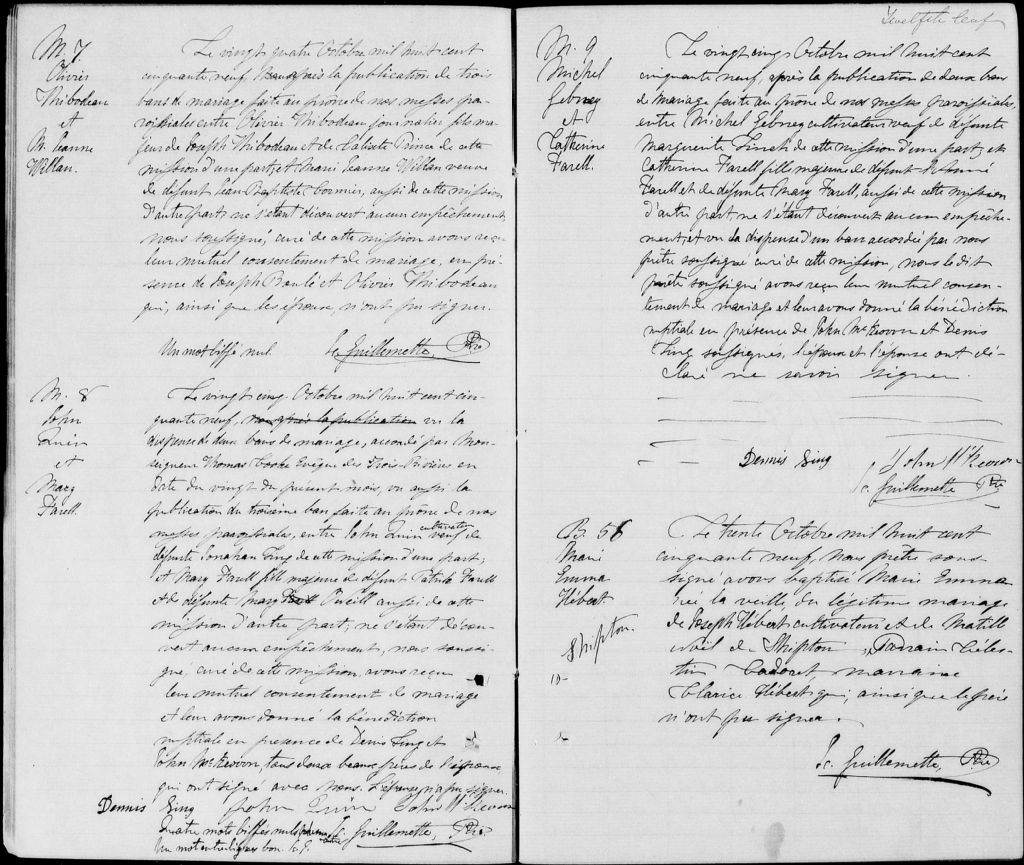 M. 7
Olivier
Thibodeau
et
M. Jeanne
Willan.
Le vingt quatre Octobre mil huit cent
cinquante neuf, après la publication de trois
bans de mariage faite au prône de nos messes pa-
roissiales entre Olivier Thibodeau journalier fils ma-
jeur de Joseph Thibodeau et de Calixte Prince de cette
mission d'une part; et Marie Jeanne Willan veuve
de défunt Jean Baptiste Cormier, aussi de cette mission
d'autre part; ne s'étant découvert aucun empêchement,
nous soussigné, curé de cette mission avons reçu
leur mutuel consentement de mariage, en pré-
sence de Joseph et Olivier Thibodeau
qui, ainsi que les époux, n'ont pu signer.
Un mot biffé nul. Guillemette, Ptre
M. 8
John
Quin
et
Mary
Farell.
Le vingt cinq Octobre mil huit cent cin-
quante neuf, nous après la publication vu la
dispense de deux bans de mariage, accordé par Mon-
seigneur Thomas Cooke Evêque des Trois Rivières en
date du vingt du présent mois, vu aussi la
publication du troisième ban faite au prône de nos
messes paroissiales, entre John Quin cultivateur veuf de
défunte Jonahan Ling de cette mission d'une part;
et Mary Farell fille majeure de défunt Patrick Farell
et de défunte Mary Oneill aussi de cette
mission d'autre part; ne s'étant décou-
vert aucun empêchement, nous soussi-
gné, curé de cette mission, avons reçu
leur mutuel consentement de mariage
et leur avons donné la bénédiction
nuptiale en présence de Denis Ling et
John McKeown, tous deux beaux frères de l'épouse
qui ont signé avec nous. L'épouse n'a pu signer.
Dennis Ling John Quin John McKeown
Quatre mots biffés nuls Guillemette, Ptre
Un mot entreligne bon. G.
Twelfth leaf
M. 9
Michel
Gebney
et
Catherine
Farell.
Le vingt cinq Octobre mil huit cent
cinquante neuf, après la publication de deux bans
de mariage faite au prône de nos messes paroissiales,
entre Michel Gebney cultivateur veuf de défunte
Marguerite Finch de cette mission d'une part; et
Catherine Farell fille majeure de défunt
Farell et de défunte Mary Farell, aussi de cette mission
d'autre part, ne s'étant découvert aucun empêche-
ment, et vu la dispense d'un ban accordée par nous
prêtre soussigné curé de cette mission, nous le dit
prêtre soussigné avons reçu leur mutuel consen-
tement de mariage et leur avons donné la bénédiction
nuptiale en présence de John McKeown et Denis
Ling soussignés, l'époux et l'épouse ont dé-
claré ne savoir signer.
Dennis Ling John McKeown
Guillemette Ptre
B. 56
Marie
Emma
Hébert.
Shipton.
10-
Le trente Octobre mil huit cent
cinquante neuf, Nous prêtre sous-
signé avons baptisé Marie Emma
née la veille du légitime mariage
de Joseph Hébert cultivateur et de Matilde
de Shipton, Parrain Céles-
tin Cadoret, marraine
Clarice Hébert qui, ainsi que le père
n'ont pu signer.
Guillemette, Ptre